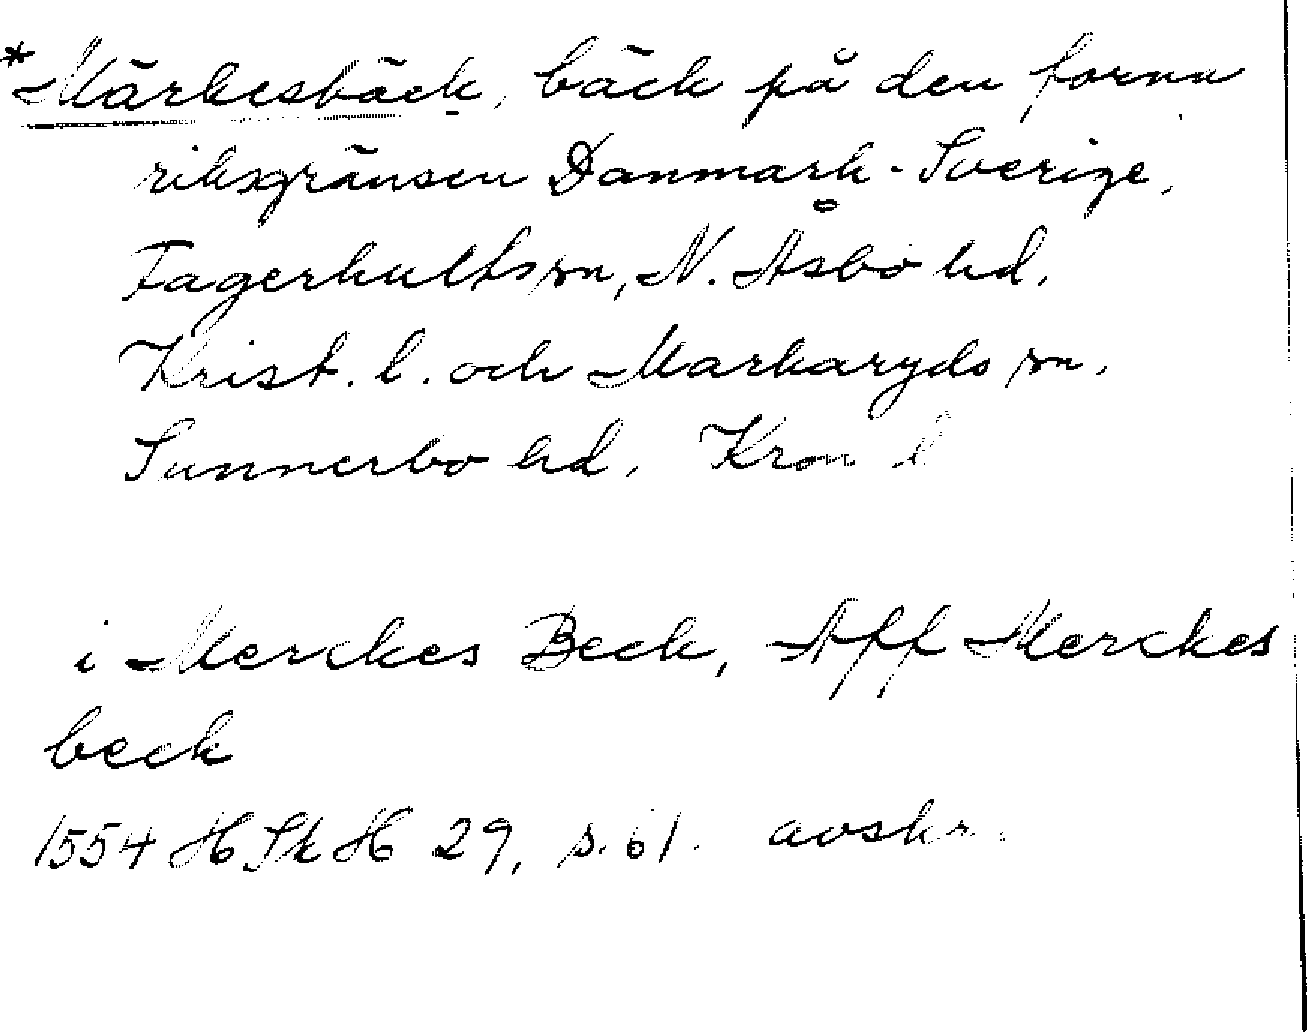 *Märkesbäck, bäck på den forna
riksgränsen Danmark-Sverige,
Fagerhults sn, N. Åsbo hd,
Krist. l. och Markaryds sn,
Sunnerbo hd, Kron l
i Merckes Beck, Aff Merckes
beck
1554 HSkH 29, s. 61. avskr.